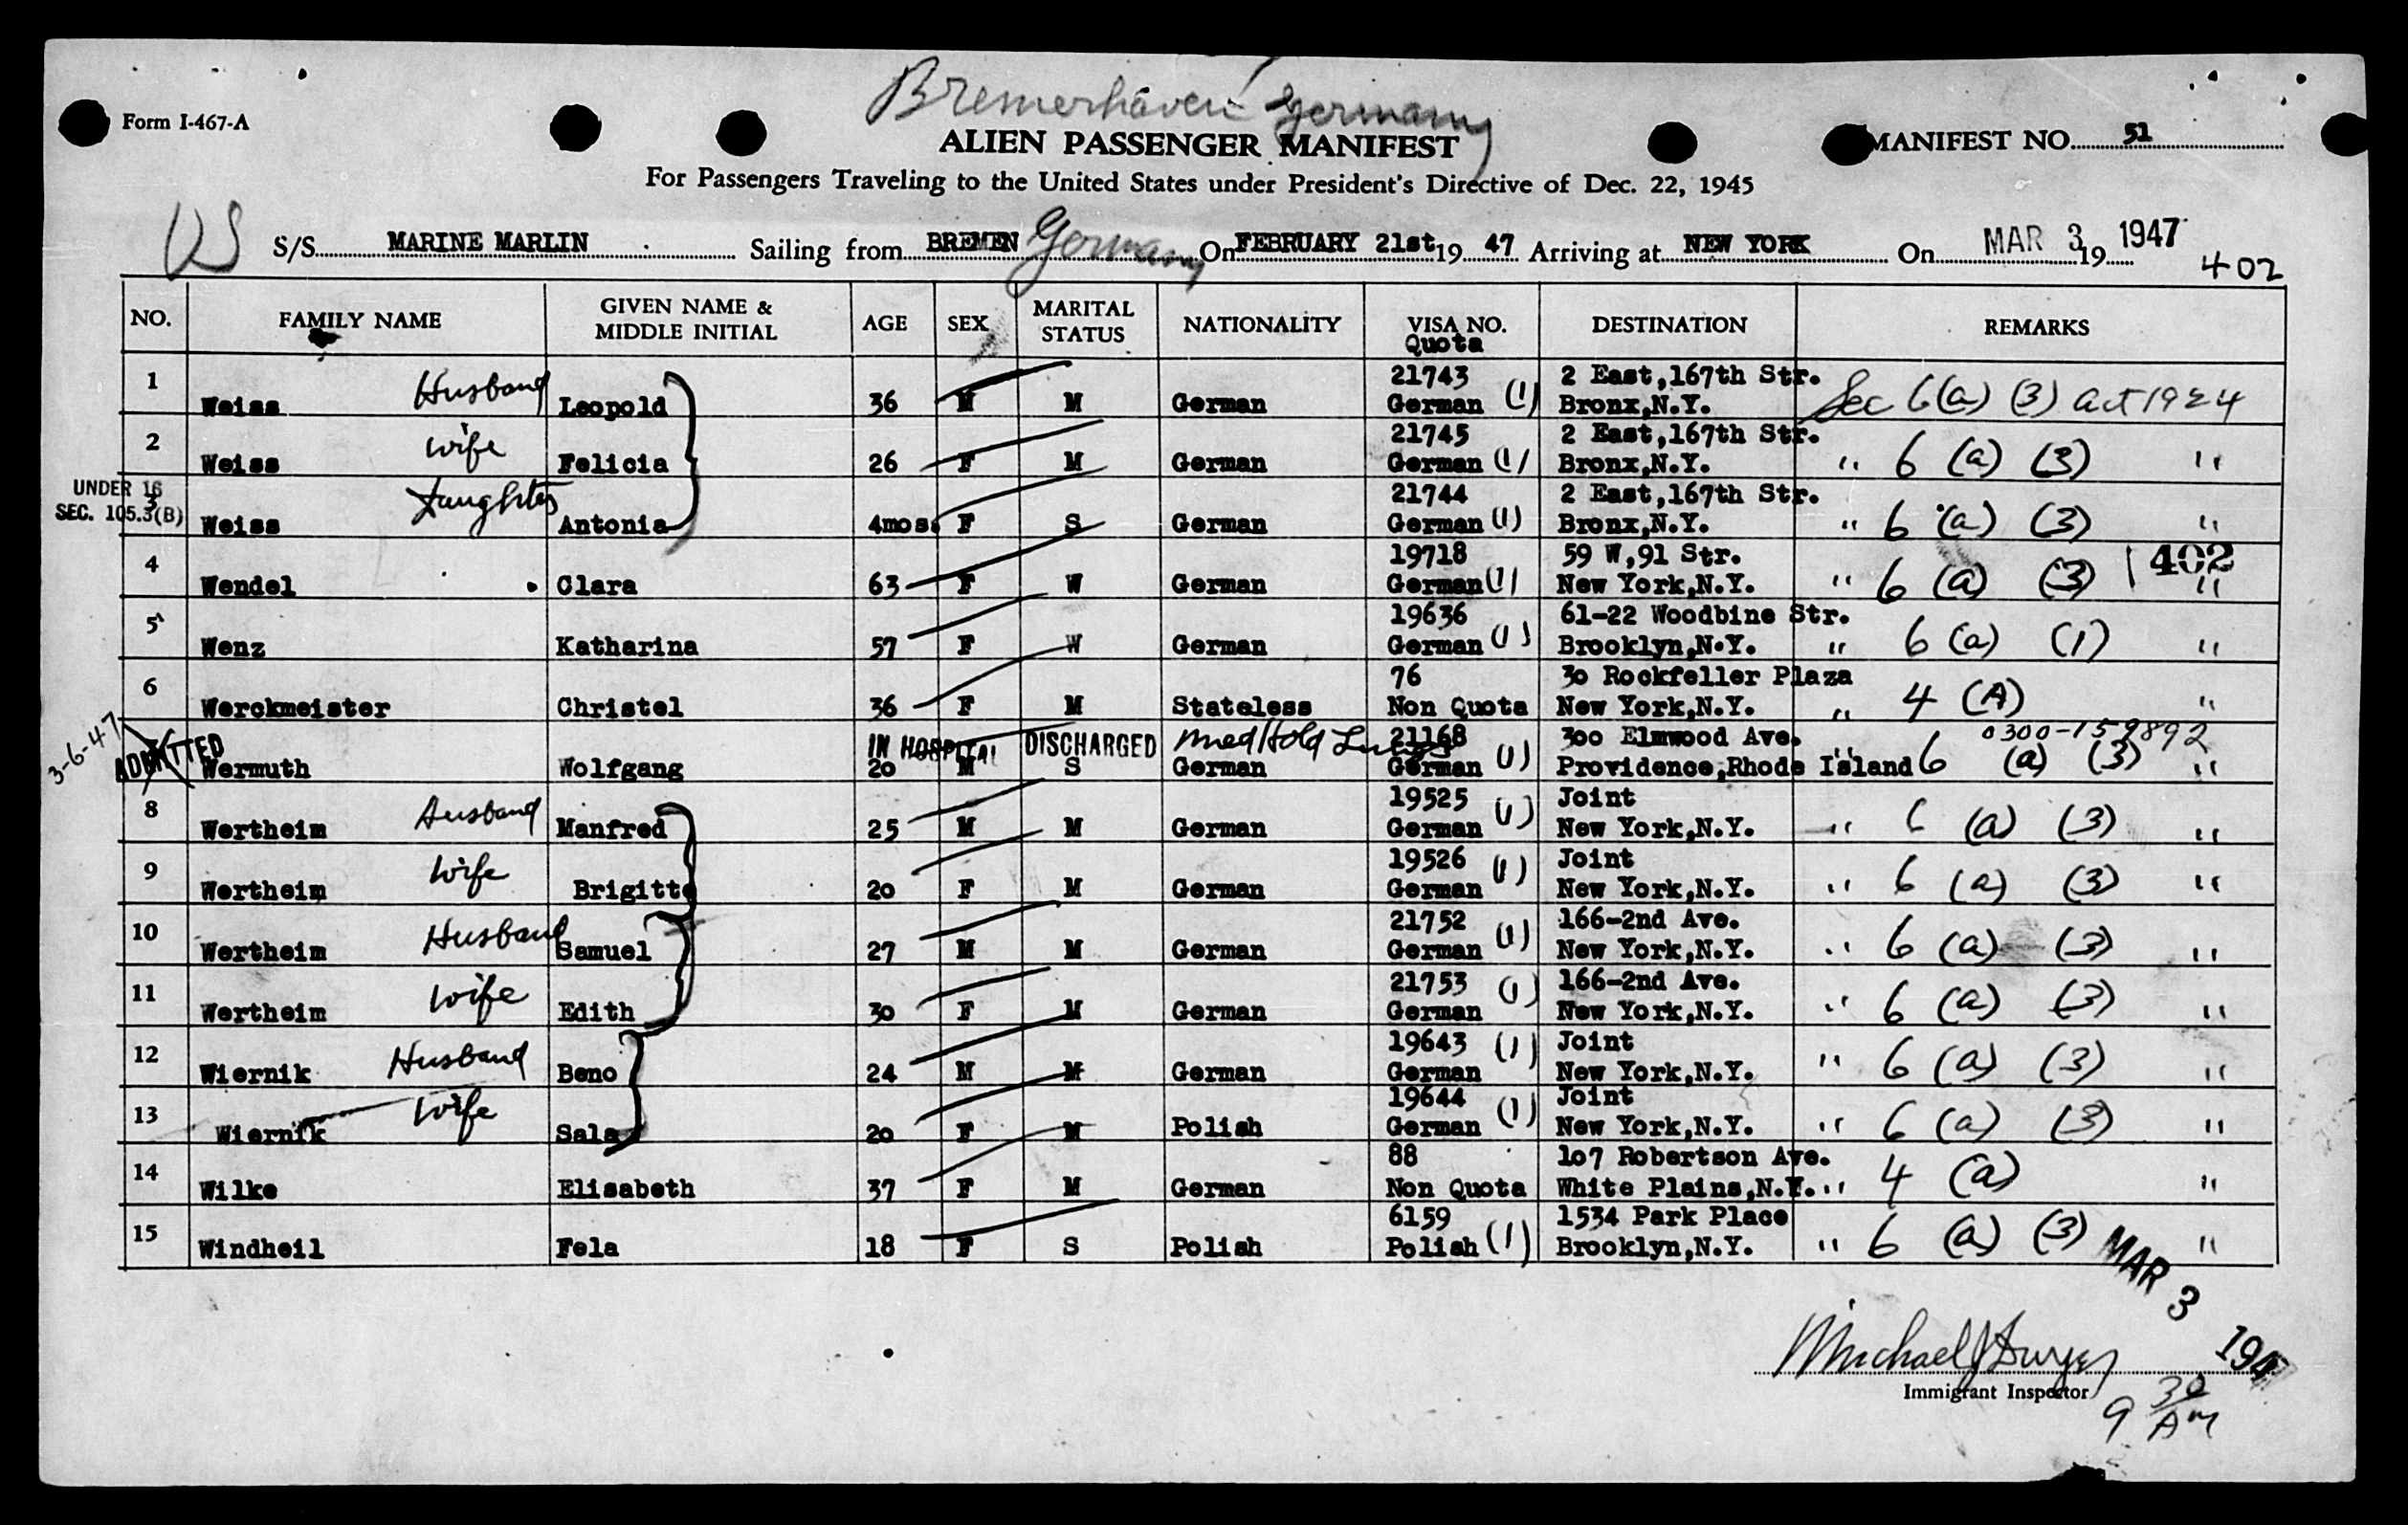 Bremerhaven Germany
Form I-467-A
ALIEN PASSENGER MANIFEST
MANIFEST NO. 51
For Passengers Traveling to the United States under President's Directive of Dec. 22, 1945
S/S MARINE MARLIN Sailing from BREMEN Germany On FEBRUARY 21st 19 47 Arriving at NEW YORK On MAR 3 19 1947
402
NO. FAMILY NAME GIVEN NAME & MIDDLE INITIAL AGE SEX MARITAL STATUS NATIONALITY VISA NO. Quota DESTINATION REMARKS
1 Weiss Husband Leopold 36 M M German 21743 German (1) 2 East,167th Str. Bronx,N.Y. Sec 6(a) (3) act 1924
2 Weiss wife Felicia 26 F M German 21745 German (1) 2 East,167th Str. Bronx,N.Y. " 6 (a) (3) "
UNDER 16 SEC. 105.3(B)
3 Weiss Daughter Antonia 4mos. F S German 21744 German (1) 2 East,167th Str. Bronx,N.Y. " 6 (a) (3) "
4 Wendel Clara 63 F W German 19718 German (1) 59 W,91 Str. New York,N.Y. " 6 (a) (3) 402 "
5 Wenz Katharina 57 F W German 19636 German (1) 61-22 Woodbine Str. Brooklyn,N.Y. " 6 (a) (1) "
6 Werckmeister Christel 36 F M Stateless 76 Non Quota 30 Rockfeller Plaza New York,N.Y. " 4 (A) "
3-6-47 ADMITTED Wermuth Wolfgang 20 IN HOSPITAL M DISCHARGED S Med Hold German 21168 German (1) 300 Elmwood Ave. Providence,Rhode Island 0300-159892 " 6 (a) (3) "
8 Wertheim Husband Manfred 25 M M German 19525 German (1) Joint New York,N.Y. " 6 (a) (3) "
9 Wertheim wife Brigitte 20 F M German 19526 German (1) Joint New York,N.Y. " 6 (a) (3) "
10 Wertheim Husband Samuel 27 M M German 21752 German (1) 166-2nd Ave. New York,N.Y. " 6 (a) (3) "
11 Wertheim wife Edith 30 F M German 21753 German (1) 166-2nd Ave. New York,N.Y. " 6 (a) (3) "
12 Wiernik Husband Beno 24 M M German 19643 German (1) Joint New York,N.Y. " 6 (a) (3) "
13 Wiernik wife Sala 20 F M Polish 19644 German (1) Joint New York,N.Y. " 6 (a) (3) "
14 Wilke Elisabeth 37 F M German 88 Non Quota 107 Robertson Ave. White Plains,N.Y. " 4 (a) "
15 Windheil Fela 18 F S Polish 6159 Polish (1) 1534 Park Place Brooklyn,N.Y. " 6 (a) (3) "
MAR 3 1947
Michael J Dwyer
Immigrant Inspector
9 30 AM